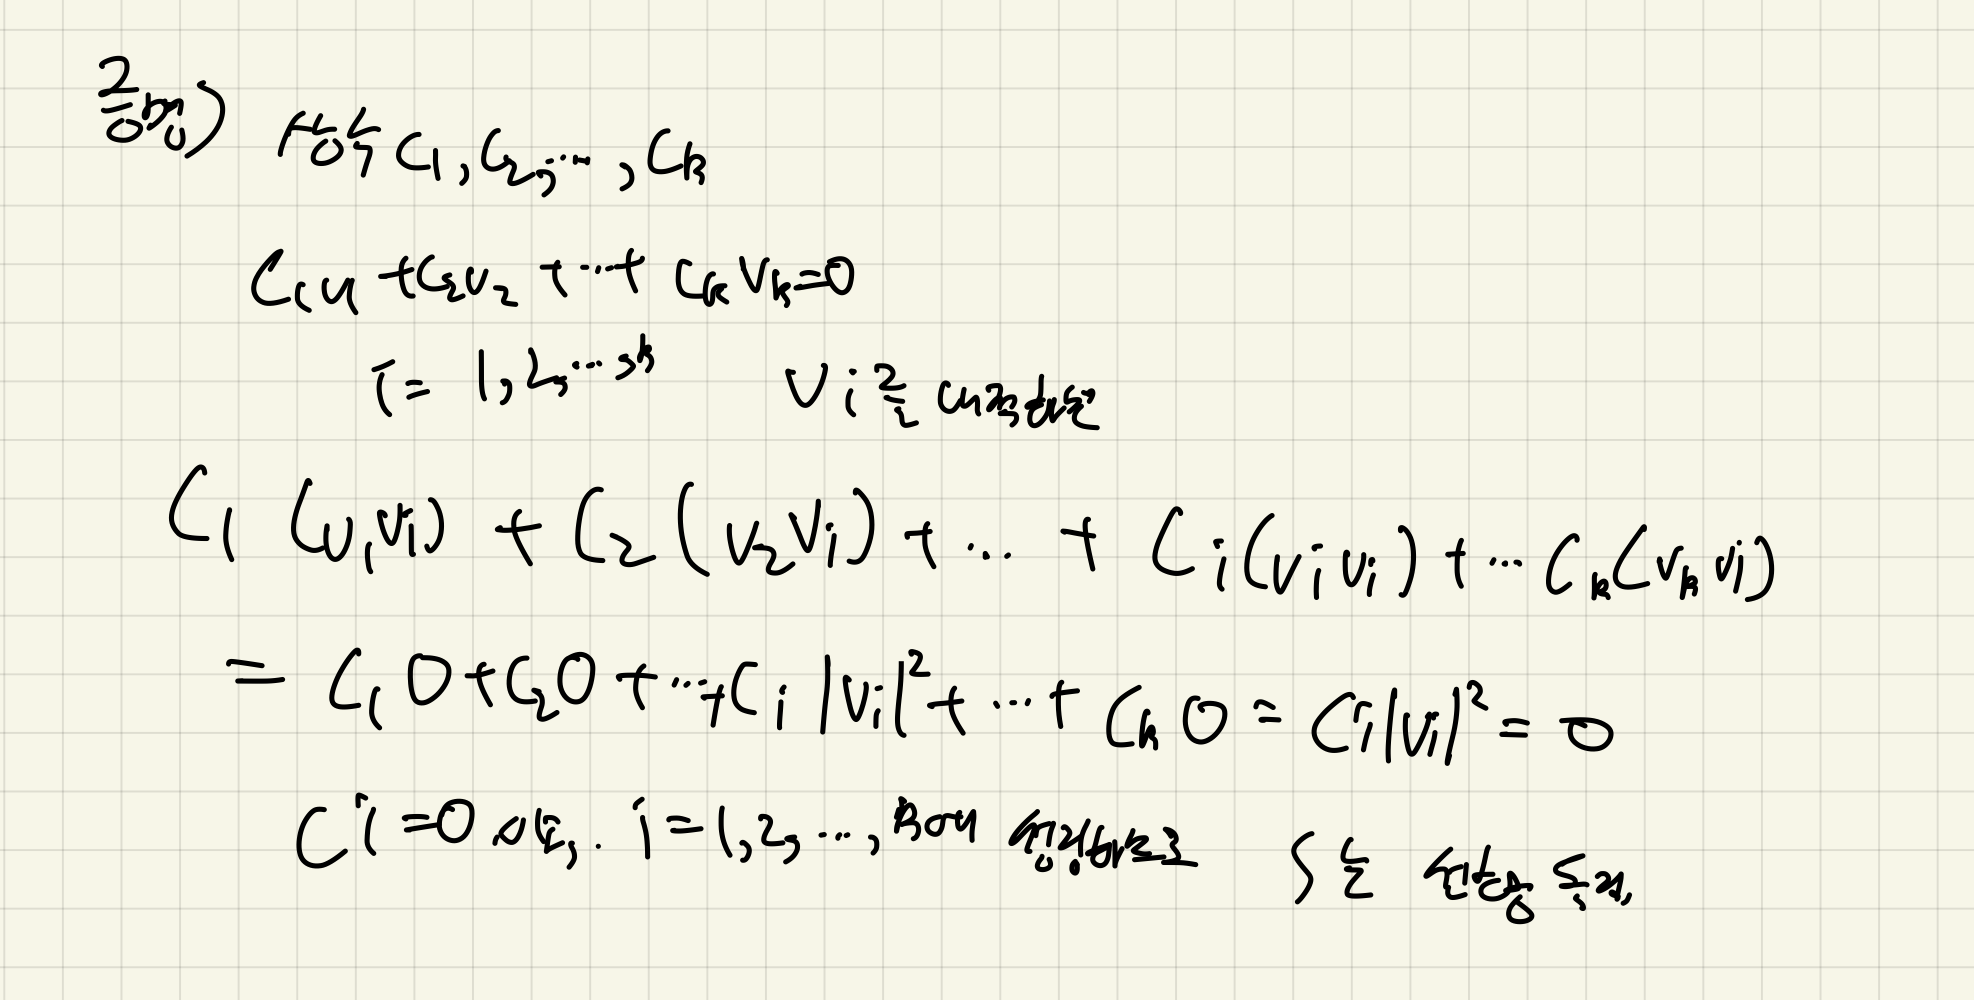 증명) 상수 C1, C2, ..., Ck
C1v1 + C2v2 + ... + CkVk = 0
i = 1, 2, ... , k Vi를 내적하면
C1 (v1 vi) + C2 (v2 vi) + ... + Ci (vi vi) + ... Ck (vk vi)
= C1 0 + C2 0 + ... + Ci |vi|² + ... + Ck 0 = Ci |vi|² = 0
Ci = 0 i = 1, 2, ..., k에 성립하므로 S는 선형 독립